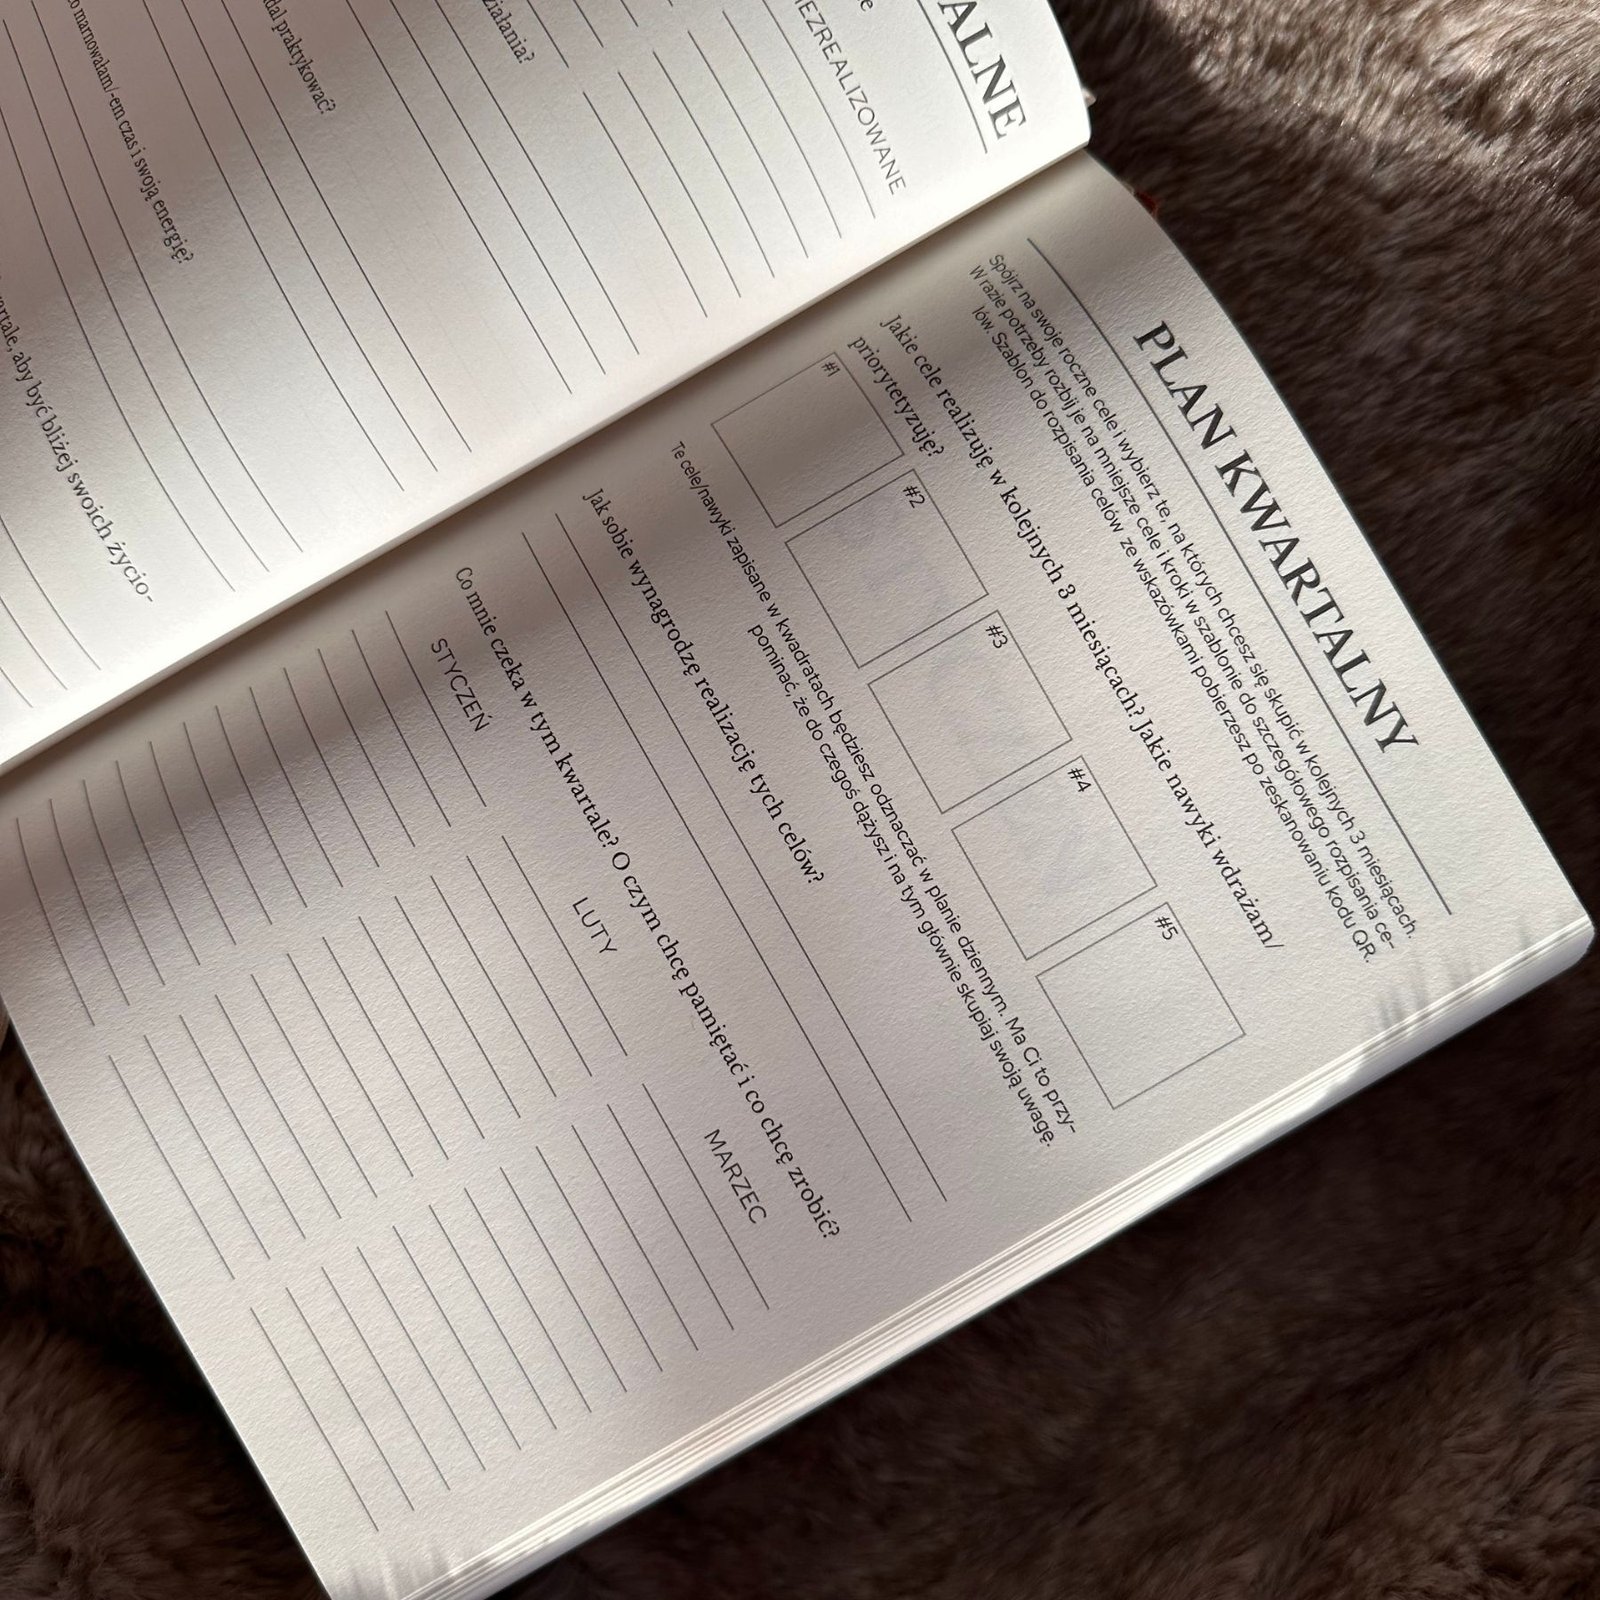 ALNE
EZREALIZOWANE
działania?
praktykować?
marnowałam/-em czas i swoją energię?
aby być bliżej swoich życio-
PLAN KWARTALNY
Spójrz na swoje roczne cele i wybierz te, na których chcesz się skupić w kolejnych 3 miesiącach.
W razie potrzeby rozbij je na mniejsze cele i kroki w szablonie do szczegółowego rozpisania ce-
lów. Szablon do rozpisania celów ze wskazówkami pobierzesz po zeskanowaniu kodu QR.
Jakie cele realizuję w kolejnych 3 miesiącach? Jakie nawyki wdrażam/
priorytetyzuję?
#1 #2 #3 #4 #5
Te cele/nawyki zapisane w kwadratach będziesz odznaczać w planie dziennym. Ma Ci to przy-
pominać, że do czegoś dążysz i na tym głównie skupiaj swoją uwagę.
Jak sobie wynagrodzę realizację tych celów?
Co mnie czeka w tym kwartale? O czym chcę pamiętać i co chcę zrobić?
STYCZEŃ LUTY MARZEC